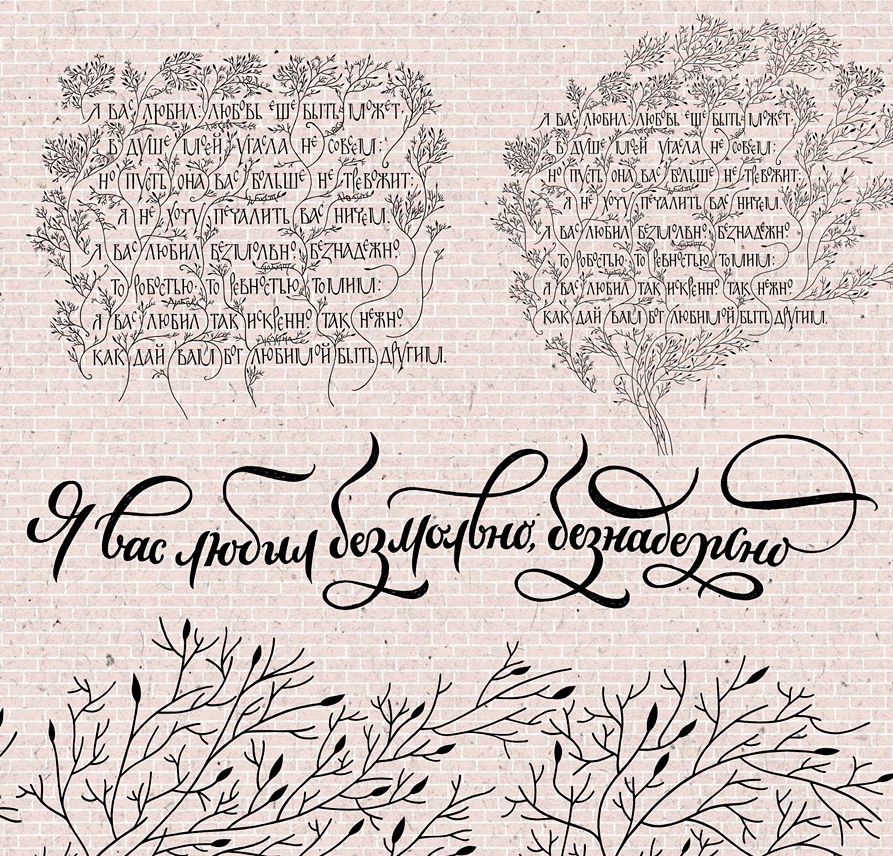 Я вас любил: любовь еще быть может,
в душе моей угасла не совсем:
но пусть она вас больше не тревожит:
я не хочу печалить вас ничем.
я вас любил безмолвно, безнадежно,
то робостью, то ревностью томим:
я вас любил так искренно так нежно.
как дай вам бог любимой быть другим.
Я вас любил: любовь еще быть может,
в душе моей угасла не совсем:
но пусть она вас больше не тревожит:
я не хочу печалить вас ничем.
я вас любил безмолвно, безнадежно,
то робостью, то ревностью томим:
я вас любил так искренно так нежно
как дай вам бог любимой быть другим.
Я вас любил безмолвно, безнадежно